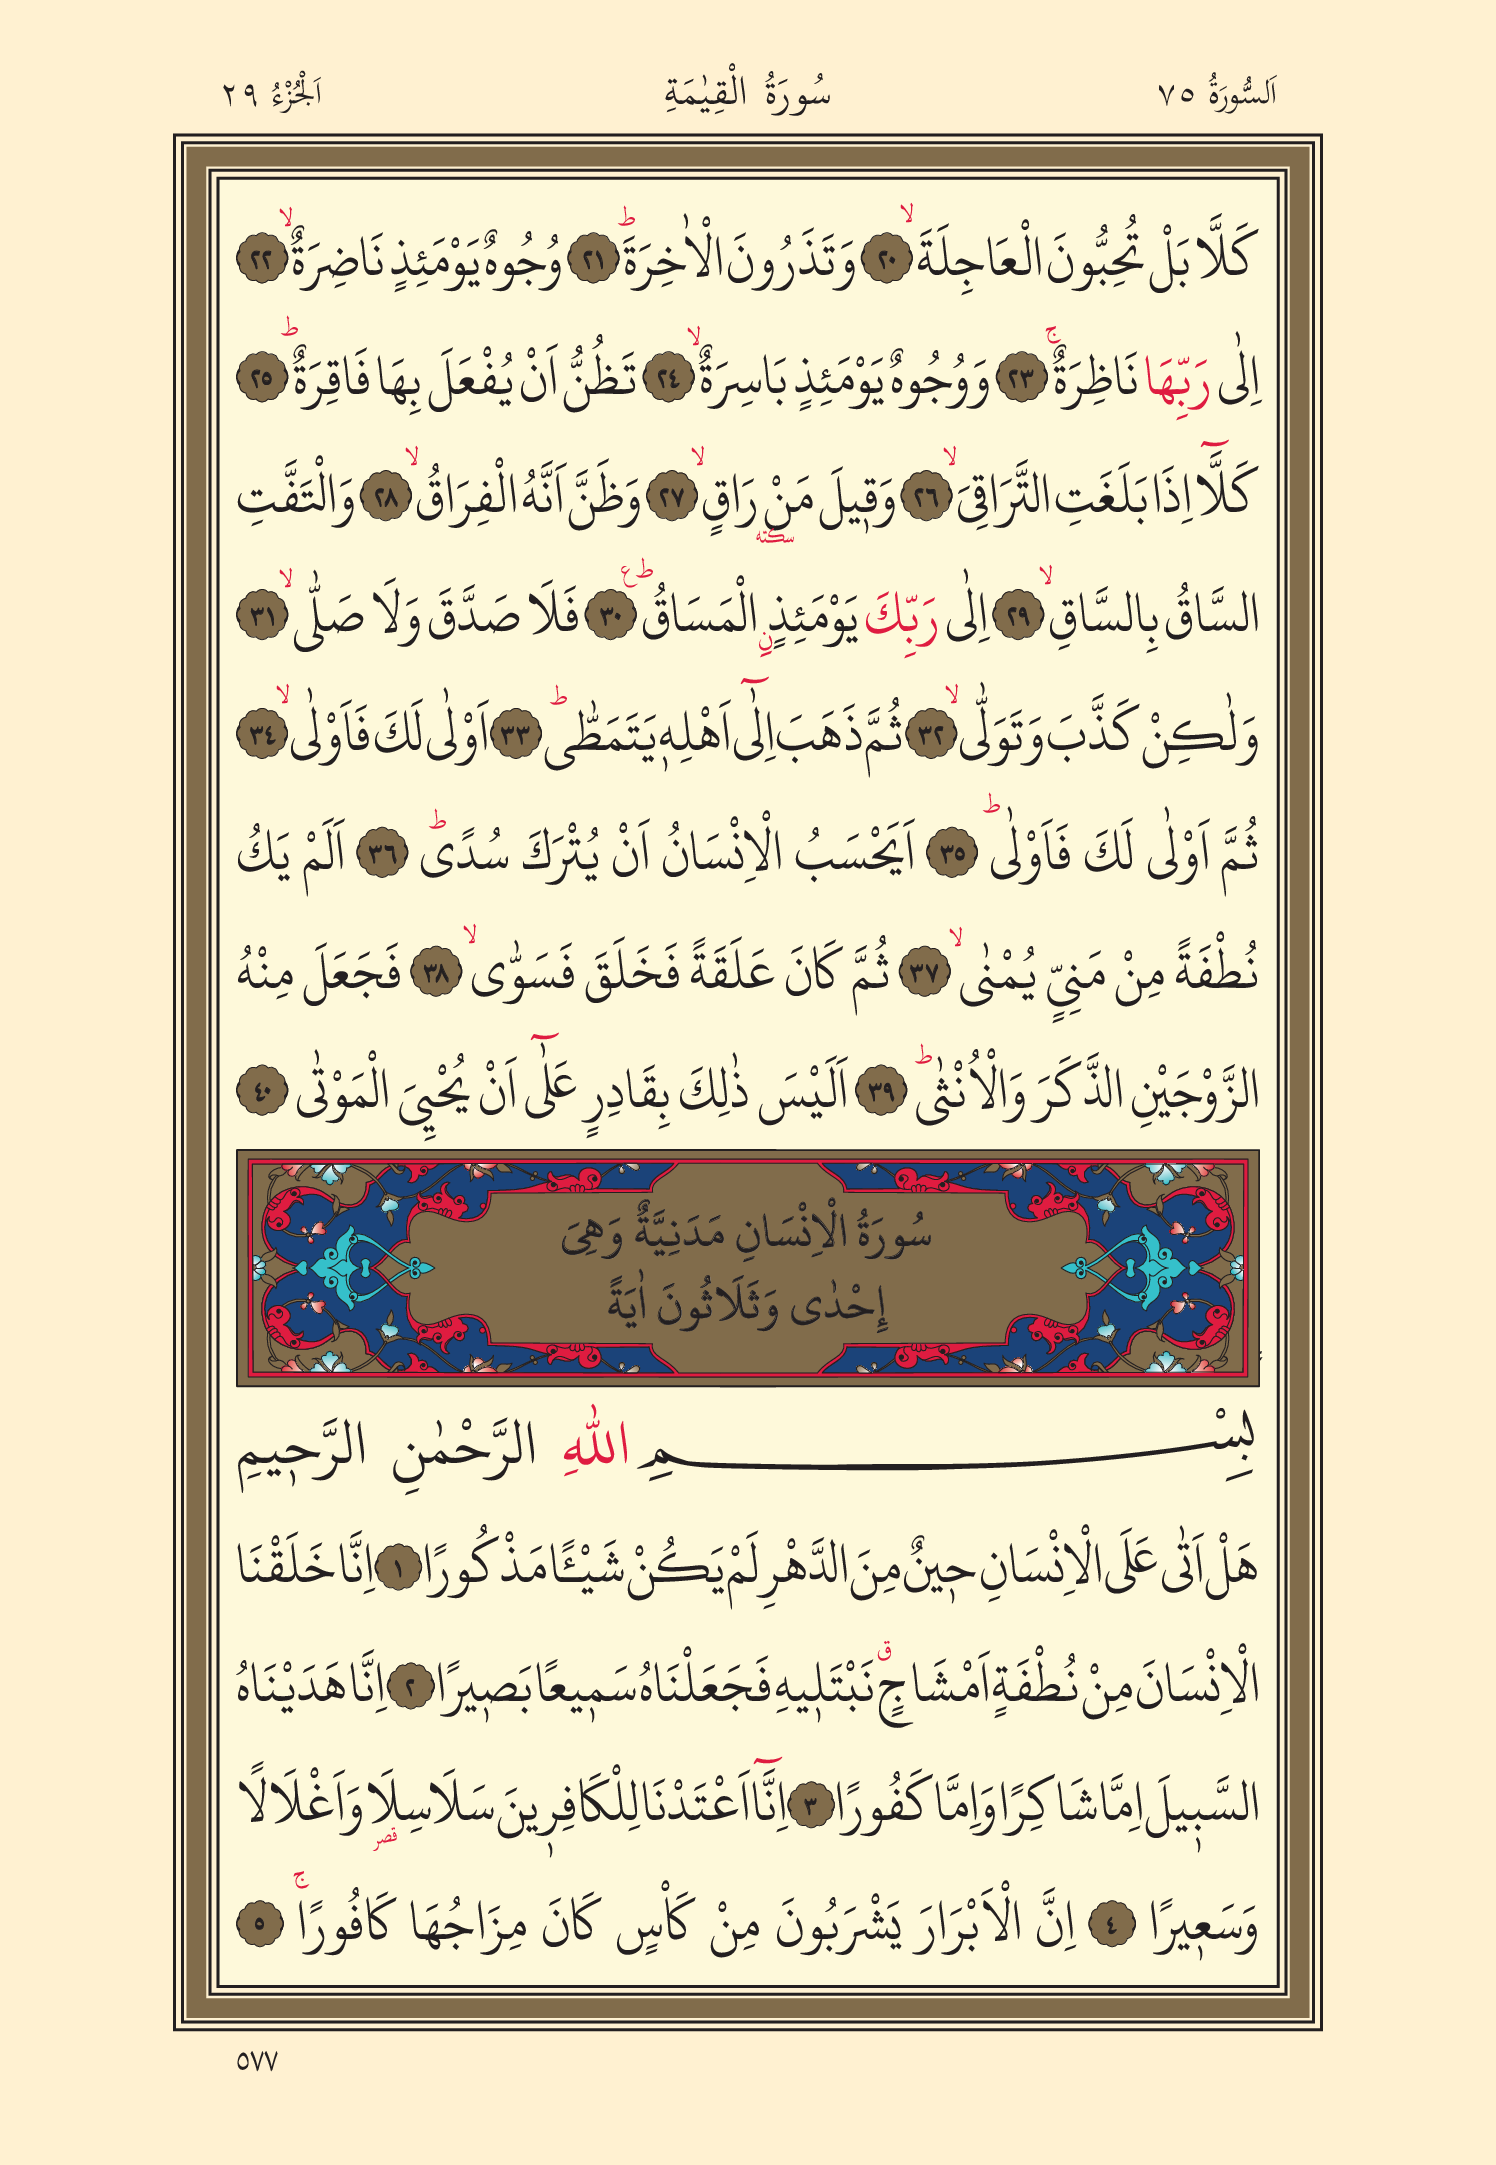 اَلسُّورَةُ ٧٥ سُورَةُ الْقِيٰمَةِ اَلْجُزْءُ ٢٩
كَلَّا بَلْ تُحِبُّونَ الْعَاجِلَةَۙ ٢٠ وَتَذَرُونَ الْاٰخِرَةَۜ ٢١ وُجُوهٌ يَوْمَئِذٍ نَاضِرَةٌۙ ٢٢
اِلٰى رَبِّهَا نَاظِرَةٌۚ ٢٣ وَوُجُوهٌ يَوْمَئِذٍ بَاسِرَةٌۙ ٢٤ تَظُنُّ اَنْ يُفْعَلَ بِهَا فَاقِرَةٌۜ ٢٥
كَلَّٓا اِذَا بَلَغَتِ التَّرَاقِىَۙ ٢٦ وَق۪يلَ مَنْ سكته رَاقٍۙ ٢٧ وَظَنَّ اَنَّهُ الْفِرَاقُۙ ٢٨ وَالْتَفَّتِ
السَّاقُ بِالسَّاقِۙ ٢٩ اِلٰى رَبِّكَ يَوْمَئِذٍ نِ الْمَسَاقُۜ ع ٣٠ فَلَا صَدَّقَ وَلَا صَلّٰىۙ ٣١
وَلٰكِنْ كَذَّبَ وَتَوَلّٰىۙ ٣٢ ثُمَّ ذَهَبَ اِلٰٓى اَهْلِه۪ يَتَمَطّٰىۜ ٣٣ اَوْلٰى لَكَ فَاَوْلٰىۙ ٣٤
ثُمَّ اَوْلٰى لَكَ فَاَوْلٰىۜ ٣٥ اَيَحْسَبُ الْاِنْسَانُ اَنْ يُتْرَكَ سُدًىۜ ٣٦ اَلَمْ يَكُ
نُطْفَةً مِنْ مَنِيٍّ يُمْنٰىۙ ٣٧ ثُمَّ كَانَ عَلَقَةً فَخَلَقَ فَسَوّٰىۙ ٣٨ فَجَعَلَ مِنْهُ
الزَّوْجَيْنِ الذَّكَرَ وَالْاُنْثٰىۜ ٣٩ اَلَيْسَ ذٰلِكَ بِقَادِرٍ عَلٰٓى اَنْ يُحْيِىَ الْمَوْتٰى ٤٠
سُورَةُ الْاِنْسَانِ مَدَنِيَّةٌ وَهِىَ
إِحْدٰى وَثَلَاثُونَ اٰيَةً
بِسْمِ اللّٰهِ الرَّحْمٰنِ الرَّح۪يمِ
هَلْ اَتٰى عَلَى الْاِنْسَانِ ح۪ينٌ مِنَ الدَّهْرِ لَمْ يَكُنْ شَيْـًٔا مَذْكُورًا ١ اِنَّا خَلَقْنَا
الْاِنْسَانَ مِنْ نُطْفَةٍ اَمْشَاجٍۗ نَبْتَل۪يهِ فَجَعَلْنَاهُ سَم۪يعًا بَص۪يرًا ٢ اِنَّا هَدَيْنَاهُ
السَّب۪يلَ اِمَّا شَاكِرًا وَاِمَّا كَفُورًا ٣ اِنَّٓا اَعْتَدْنَا لِلْكَافِر۪ينَ سَلَاسِلَا۬ قصر وَاَغْلَالًا
وَسَع۪يرًا ٤ اِنَّ الْاَبْرَارَ يَشْرَبُونَ مِنْ كَأْسٍ كَانَ مِزَاجُهَا كَافُورًاۚ ٥
٥٧٧